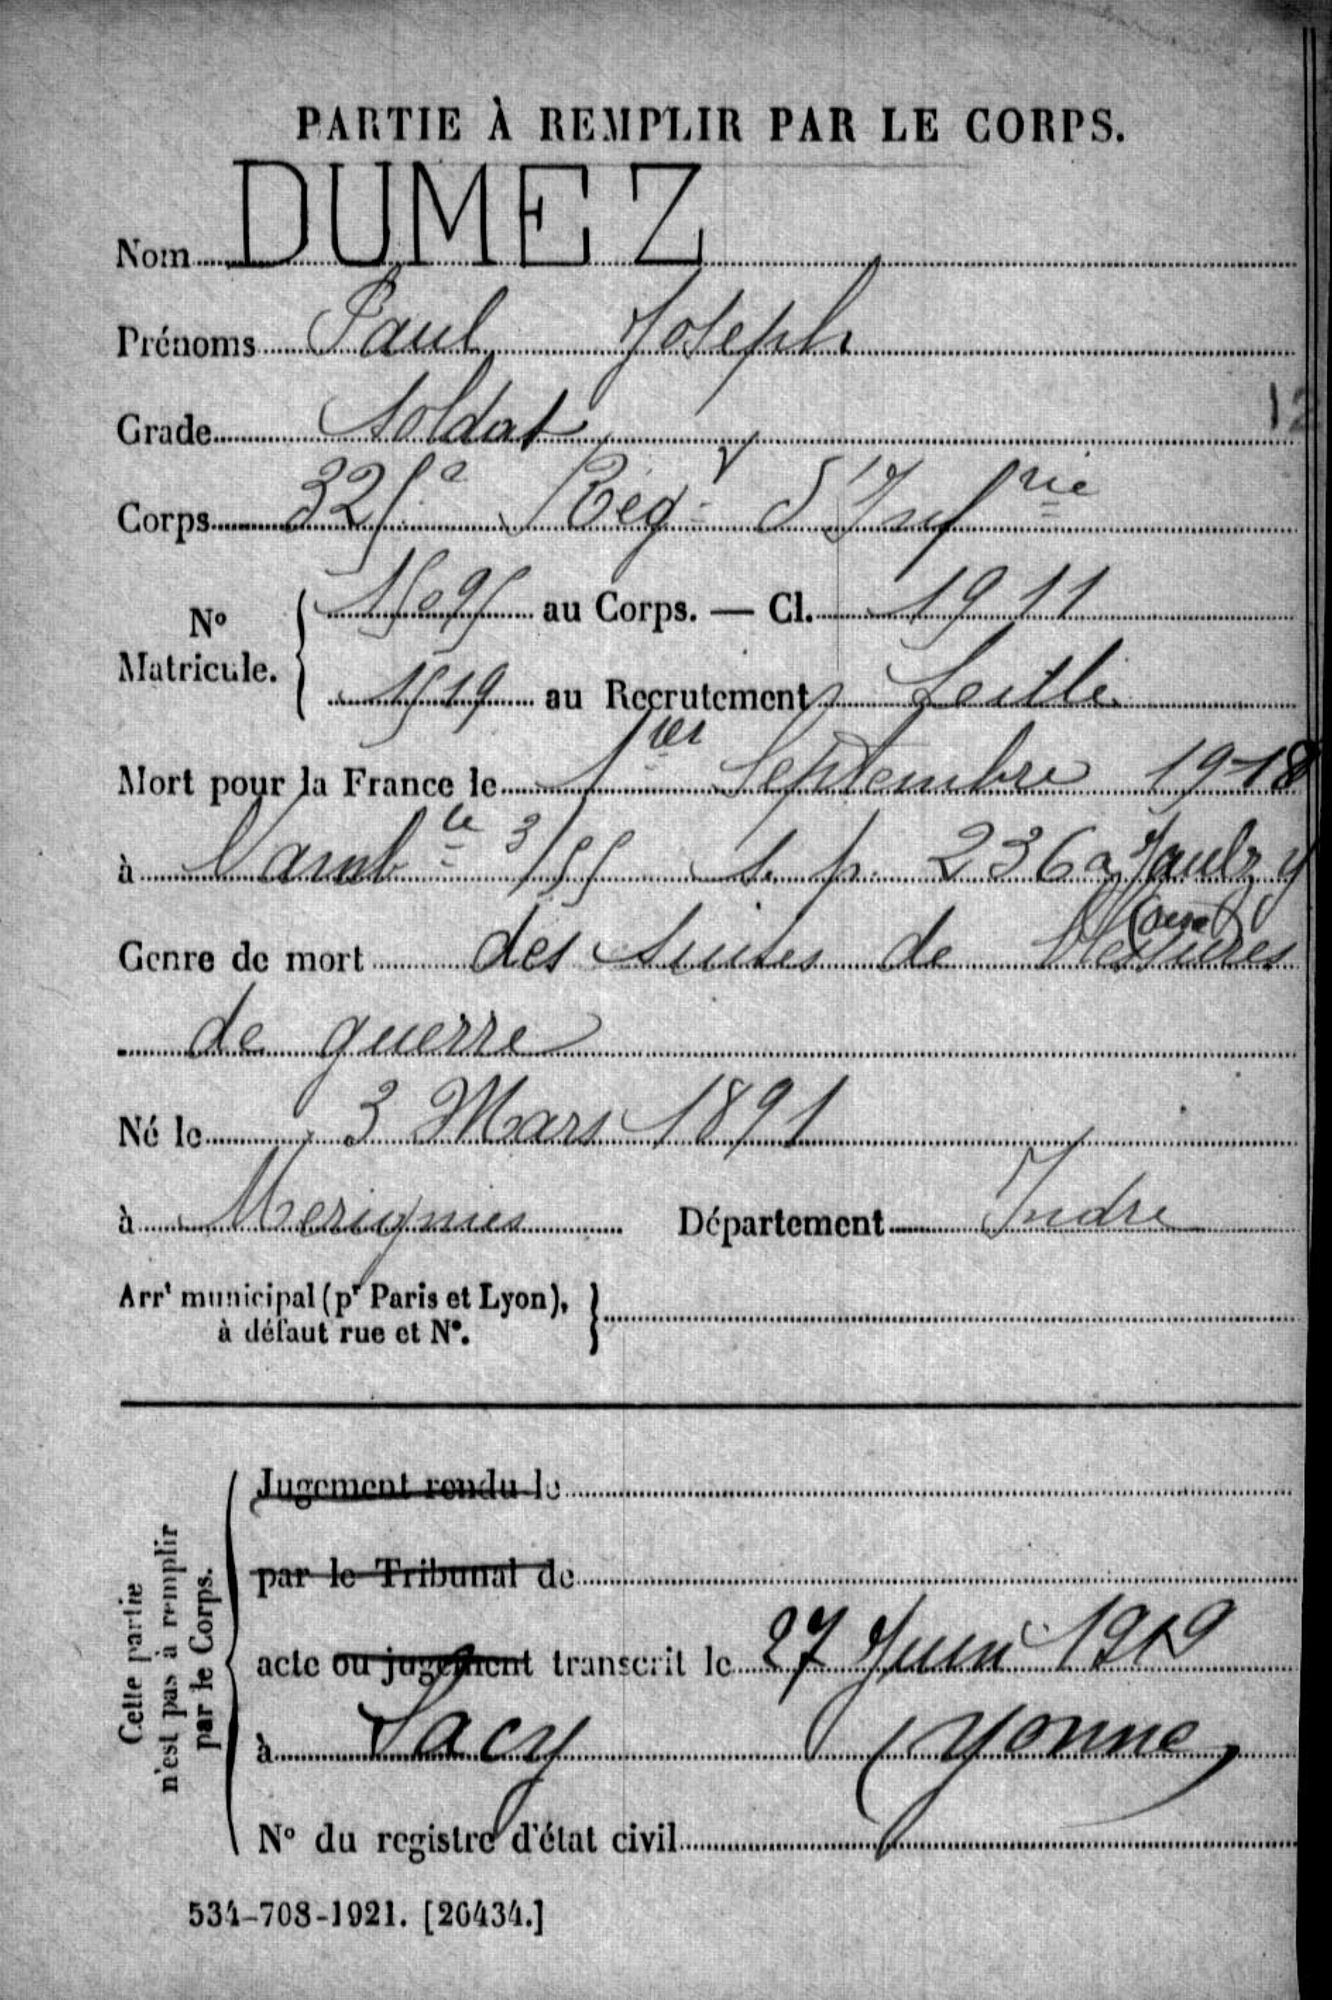 PARTIE À REMPLIR PAR LE CORPS.
Nom DUMEZ
Prénoms Paul Joseph
Grade Soldat
12
Corps 325e Régt d'Infrie
No Matricule. 15095 au Corps. — Cl. 1911
1519 au Recrutement Lille
Mort pour la France le 1er Septembre 1918
à l'ambce 3/55 s. p. 236 à Jaulzy
(Oise)
Genre de mort des suites de blessures
de guerre
Né le 3 Mars 1891
à Merignies Département Indre
Arrt municipal (pr Paris et Lyon),
à défaut rue et No.
Cette partie
n'est pas à remplir
par le Corps.
Jugement rendu le
par le Tribunal de
acte ou jugement transcrit le 27 Juin 1919
à Sacy (Yonne)
No du registre d'état civil
534-708-1921. [26434.]